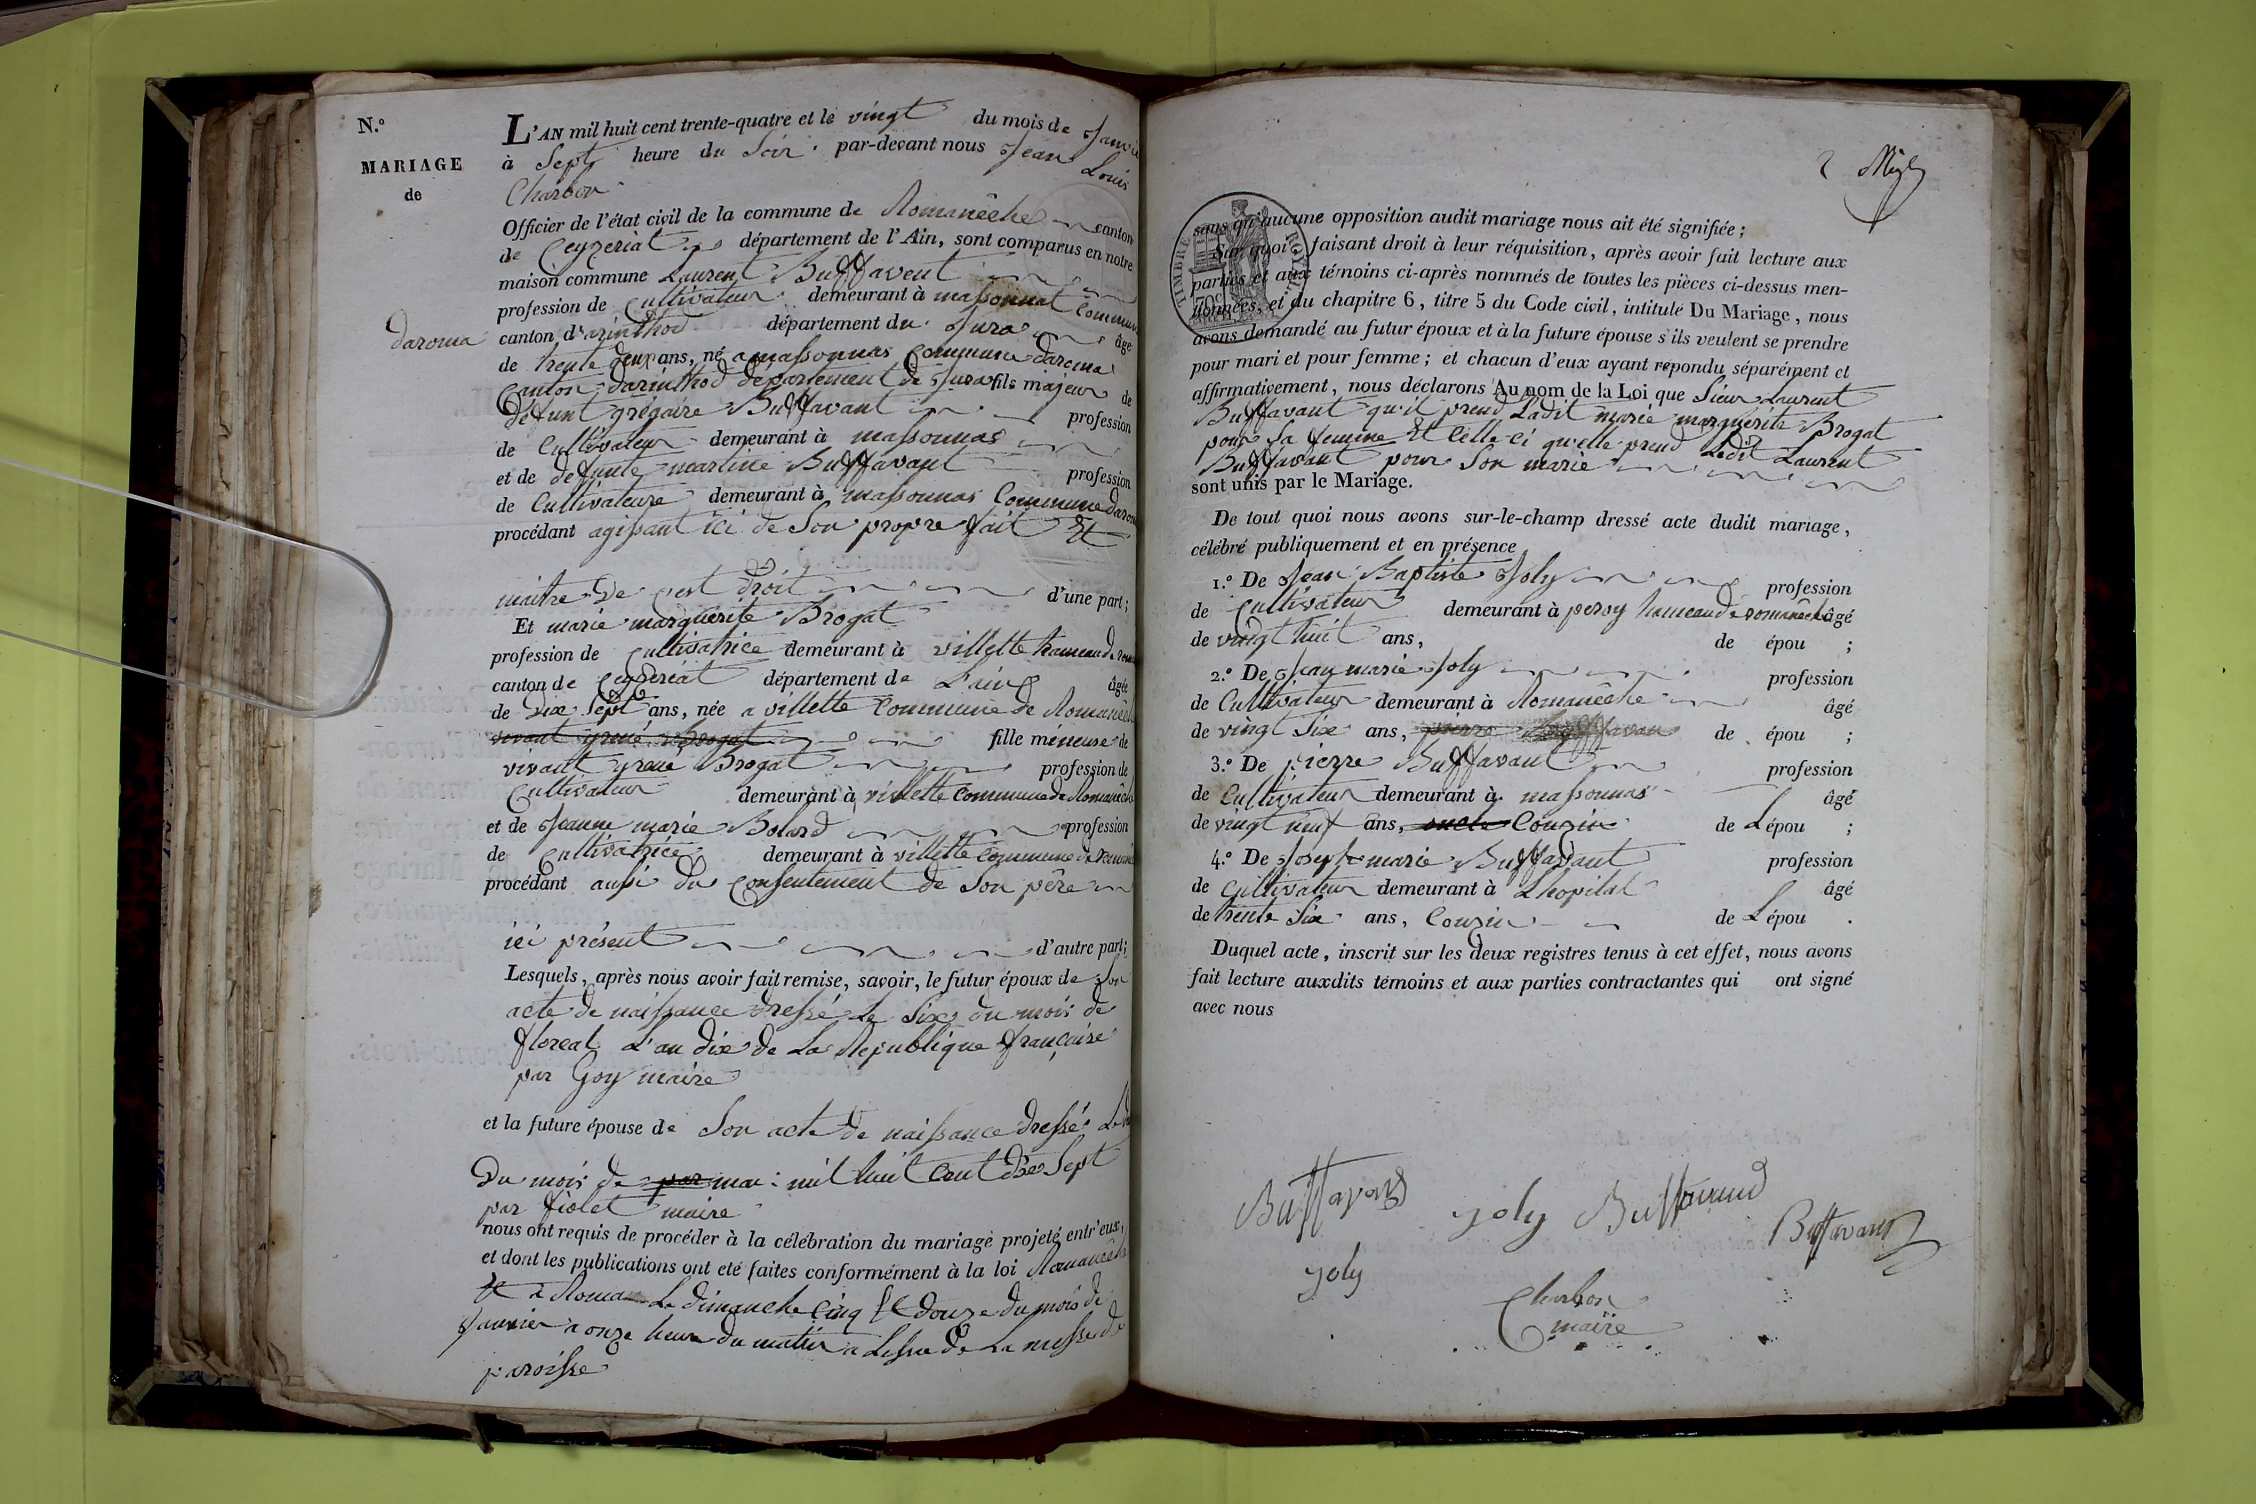 N.º
MARIAGE
de
daroma
L'AN mil huit cent trente-quatre et le vingt du mois de Janvier
à Sept heure du Soir par-devant nous Jean Louis
Charbon
Officier de l'état civil de la commune de Romanêche canton
de Ceyzeriat département de l'Ain, sont comparus en notre
maison commune Laurent Buffavent
profession de Cultivateur demeurant à massonnat Commune
canton d'arinthod département du Jura âgé
de trente deux ans, né a massonnas Commune daroma
Canton darinthod département de Jura fils majeur de
défunt grégoire Buffavant profession
de Cultivateur demeurant à massonnas
et de defunte martine Buffavant profession
de Cultivateure demeurant à massonnas Commune daroma
procédant agissant ici de Son propre fait Et
maitre De cest droit d'une part;
Et marie marguerite Brogat
profession de Cultivatrice demeurant à villette hameau de
canton de Ceyzeriat département de L'ain âgée
de Dix Sept ans, née a villette Commune de Romanêche
vivant Brogat fille meneuse de
vivant Brogat profession de
Cultivateur demeurant à villette Commune de Romanêche
et de Jeanne marie Bolard profession
de Cultivatrice demeurant à villette Commune de
procédant aussi du Consentement de Son père
ici présent d'autre part;
Lesquels, après nous avoir fait remise, savoir, le futur époux de Son
acte de naissance dressé Le Six du mois de
floreal L'an dix de La Republique françoise
par Goy maire
et la future épouse de Son acte de naissance dressé Le
Du mois de mai mil huit Cent dix Sept
par fiolet maire
nous ont requis de procéder à la célébration du mariage projeté entr'eux,
et dont les publications ont eté faites conformément à la loi Romanêche
Et à Le dimanche Cinq Et douze du mois de
Janvier a onze heure du matin a Lissue de La messe de
paroisse
2
sans qu'aucune opposition audit mariage nous ait été signifiée;
Sur quoi, faisant droit à leur réquisition, après avoir fait lecture aux
parties et aux témoins ci-après nommés de toutes les pièces ci-dessus men-
tionnées, et du chapitre 6, titre 5 du Code civil, intitulé Du Mariage, nous
avons demandé au futur époux et à la future épouse s'ils veulent se prendre
pour mari et pour femme; et chacun d'eux ayant répondu séparément et
affirmativement, nous déclarons Au nom de la Loi que Sieur Laurent
Buffavant qu'il prend Ladit marie marguerite Brogat
pour Sa femme Et Celle ci qu'elle prend Ledit Laurent
Buffavant pour Son marie
sont unis par le Mariage.
De tout quoi nous avons sur-le-champ dressé acte dudit mariage,
célébré publiquement et en présence
1.º De Jean Baptiste Joly profession
de Cultivateur demeurant à hameau de romanêche âgé
de vingt huit ans, de épou ;
2.º De Jean marie Joly profession
de Cultivateur demeurant à Romanêche âgé
de vingt Six ans, pierre Buffavan de épou ;
3.º De pierre Buffavant profession
de Cultivateur demeurant à massonnas âgé
de vingt neuf ans, oncle Couzin de Lépou ;
4.º De Joseph marie Buffavant profession
de Cultivateur demeurant à Lhopital âgé
de trente Six ans, Couzin de Lépou .
Duquel acte, inscrit sur les deux registres tenus à cet effet, nous avons
fait lecture auxdits témoins et aux parties contractantes qui ont signé
avec nous
TIMBRE ROYAL
70c
Buffavand joly Buffavand
Buffavant
joly
Charbon
maire